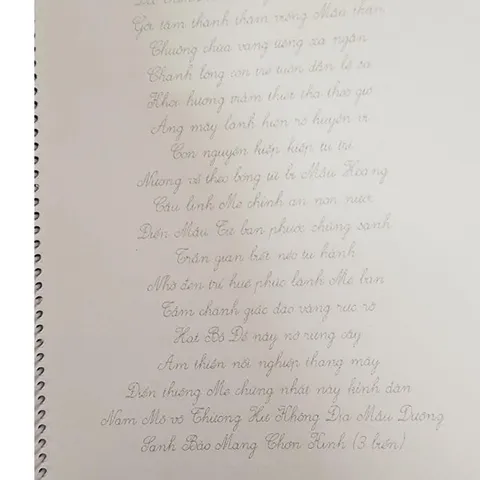 Gởi tâm thành thăm viếng Mẫu thân
Chuông chùa vang tiếng xa ngân
Chạnh lòng con trẻ tuôn dần lệ sa
Khói hương trầm thướt tha theo gió
Áng mây lành hiện rõ huyền vi
Con nguyện kiếp kiếp tu trì
Nương về theo bóng từ bi Mẫu Hoàng
Cầu linh Mẹ chính an non nước
Diêu Mẫu Từ ban phước chúng sanh
Trần gian biết nẻo tu hành
Nhờ đèn trí huệ phúc lành Mẹ ban
Tâm chánh giác đạo vàng rực rỡ
Hạt Bồ Đề nảy nở rừng cây
Am thiền nối nghiệp thang mây
Điện thượng Mẹ chứng nhật này kính dâng
Nam Mô vô Thượng Hư Không Địa Mẫu Dưỡng
Sanh Bảo Mạng Chơn Kinh (3 biến)